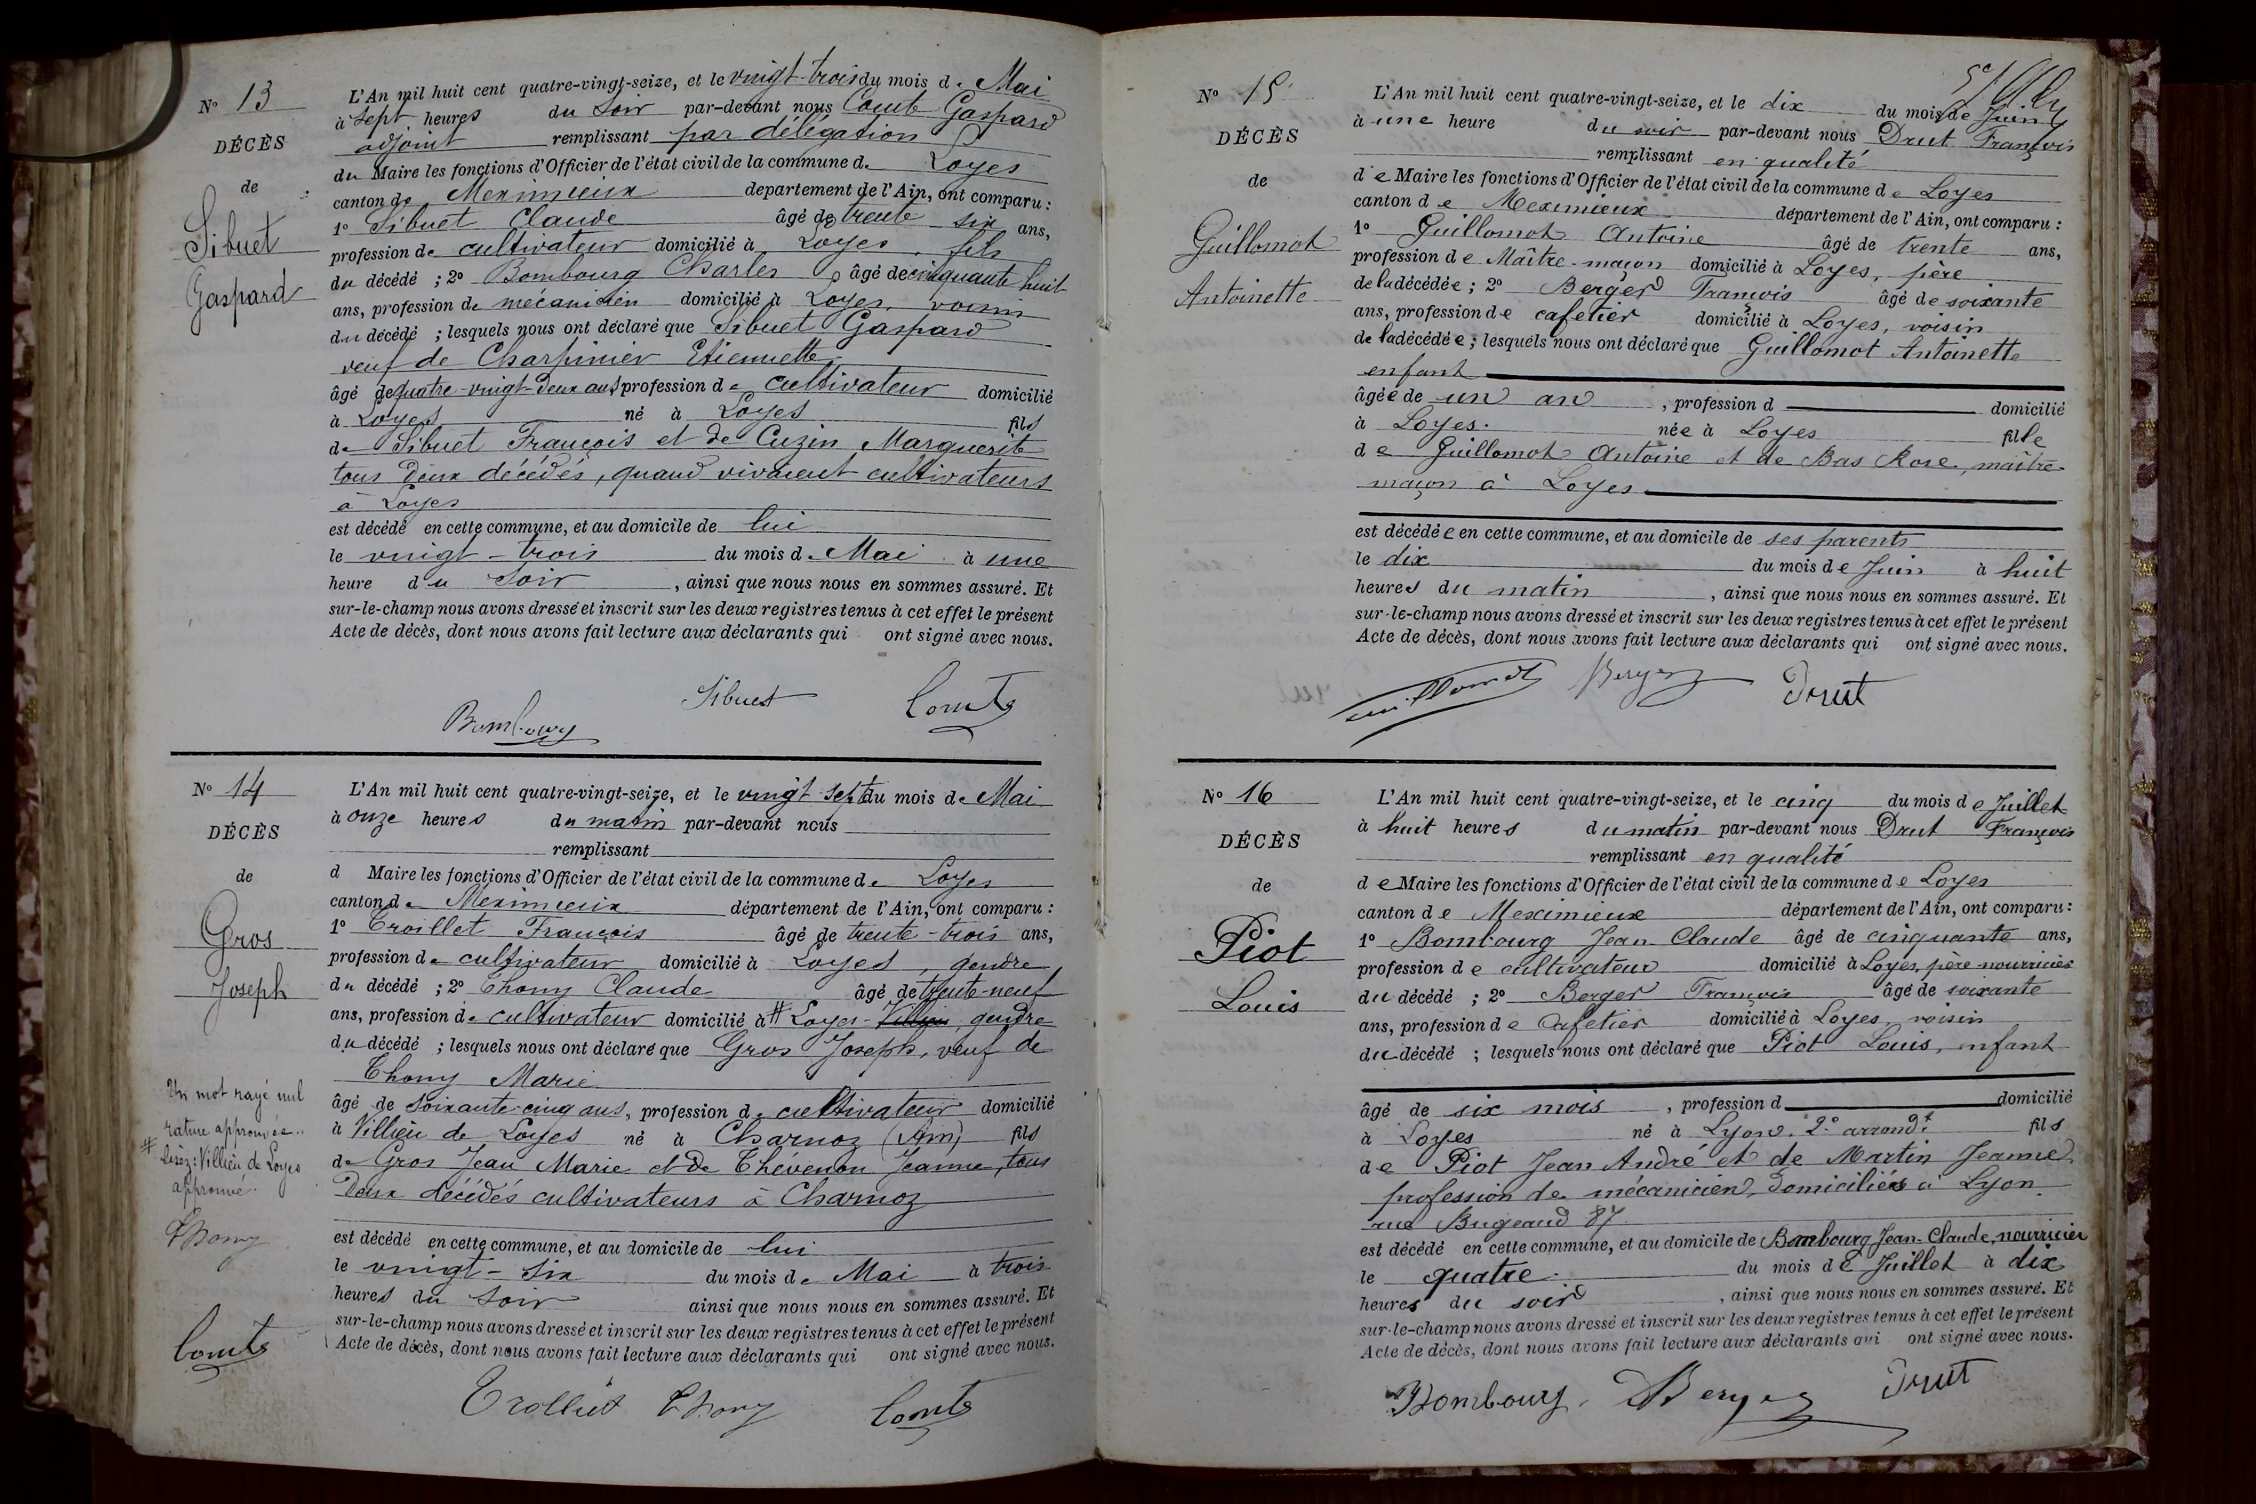 N° 13
DÉCÈS
de
Sibuet
Gaspard
L'An mil huit cent quatre-vingt-seize, et le vingt-trois du mois de Mai
à sept heures du soir par-devant nous Comte Gaspard
adjoint remplissant par délégation
du Maire les fonctions d'Officier de l'état civil de la commune de Loyes
canton de Meximieux département de l'Ain, ont comparu :
1° Sibuet Claude âgé de trente six ans,
profession de cultivateur domicilié à Loyes, fils
du décédé ; 2° Bombourg Charles âgé de cinquante huit
ans, profession de mécanicien domicilié à Loyes, voisin
du décédé ; lesquels nous ont déclaré que Sibuet Gaspard
veuf de Charpinier Etiennette
âgé de quatre-vingt-deux ans, profession de cultivateur domicilié
à Loyes né à Loyes fils
de Sibuet François et de Cuzin Marguerite
tous deux décédés, quand vivaient cultivateurs
à Loyes
est décédé en cette commune, et au domicile de lui
le vingt-trois du mois de Mai à une
heure du soir, ainsi que nous nous en sommes assuré. Et
sur-le-champ nous avons dressé et inscrit sur les deux registres tenus à cet effet le présent
Acte de décès, dont nous avons fait lecture aux déclarants qui ont signé avec nous.
Bombourg Sibuet Comte
N° 14
DÉCÈS
de
Gros
Joseph
L'An mil huit cent quatre-vingt-seize, et le vingt sept du mois de Mai
à onze heures du matin par-devant nous
remplissant
d Maire les fonctions d'Officier de l'état civil de la commune de Loyes
canton de Méximieux département de l'Ain, ont comparu :
1° Trolliet François âgé de trente-trois ans,
profession de cultivateur domicilié à Loyes, gendre
du décédé ; 2° Thony Claude âgé de trente-neuf
ans, profession de cultivateur domicilié à # Loyes-Villieu, gendre
du décédé ; lesquels nous ont déclaré que Gros Joseph, veuf de
Thony Marie
âgé de soixante-cinq ans, profession de cultivateur domicilié
à Villieu de Loyes né à Charnoz (Ain) fils
de Gros Jean Marie et de Thévenon Jeanne, tous
deux décédés cultivateurs à Charnoz
est décédé en cette commune, et au domicile de lui
le vingt-six du mois de Mai à trois
heures du soir ainsi que nous nous en sommes assuré. Et
sur-le-champ nous avons dressé et inscrit sur les deux registres tenus à cet effet le présent
Acte de décès, dont nous avons fait lecture aux déclarants qui ont signé avec nous.
Un mot rayé nul
rature approuvée..
# Lisez: Villieu de Loyes
approuvé.
Thony
Comte
Trolliet Thony Comte
N° 15
DÉCÈS
de
Guillomot
Antoinette
L'An mil huit cent quatre-vingt-seize, et le dix du mois de Juin
à une heure du soir par-devant nous Drut François
remplissant en qualité
de Maire les fonctions d'Officier de l'état civil de la commune de Loyes
canton de Meximieux département de l'Ain, ont comparu :
1° Guillomot Antoine âgé de trente ans,
profession de Maître-maçon domicilié à Loyes, père
de la décédée ; 2° Berger François âgé de soixante
ans, profession de cafetier domicilié à Loyes, voisin
de la décédée ; lesquels nous ont déclaré que Guillomot Antoinette
enfant
âgée de un an, profession d domicilié
à Loyes. née à Loyes fille
de Guillomot Antoine et de Bas Rose, maître-
maçon à Loyes
est décédée en cette commune, et au domicile de ses parents
le dix du mois de Juin à huit
heures du matin, ainsi que nous nous en sommes assuré. Et
sur-le-champ nous avons dressé et inscrit sur les deux registres tenus à cet effet le présent
Acte de décès, dont nous avons fait lecture aux déclarants qui ont signé avec nous.
Guillomot Berger Drut
N° 16
DÉCÈS
de
Piot
Louis
L'An mil huit cent quatre-vingt-seize, et le cinq du mois de Juillet
à huit heures du matin par-devant nous Drut François
remplissant en qualité
de Maire les fonctions d'Officier de l'état civil de la commune de Loyes
canton de Meximieux département de l'Ain, ont comparu :
1° Bombourg Jean-Claude âgé de cinquante ans,
profession de cultivateur domicilié à Loyes, père-nourricier
du décédé ; 2° Berger François âgé de soixante
ans, profession de cafetier domicilié à Loyes, voisin
du décédé ; lesquels nous ont déclaré que Piot Louis, enfant
âgé de six mois, profession d domicilié
à Loyes né à Lyon. 2e arrondt. fils
de Piot Jean André et de Martin Jeanne
profession de mécanicien, domiciliés à Lyon.
rue Bugeaud 87
est décédé en cette commune, et au domicile de Bombourg Jean-Claude, nourricier
le quatre du mois de Juillet à dix
heures du soir, ainsi que nous nous en sommes assuré. Et
sur-le-champ nous avons dressé et inscrit sur les deux registres tenus à cet effet le présent
Acte de décès, dont nous avons fait lecture aux déclarants qui ont signé avec nous.
Bombourg. Berger Drut